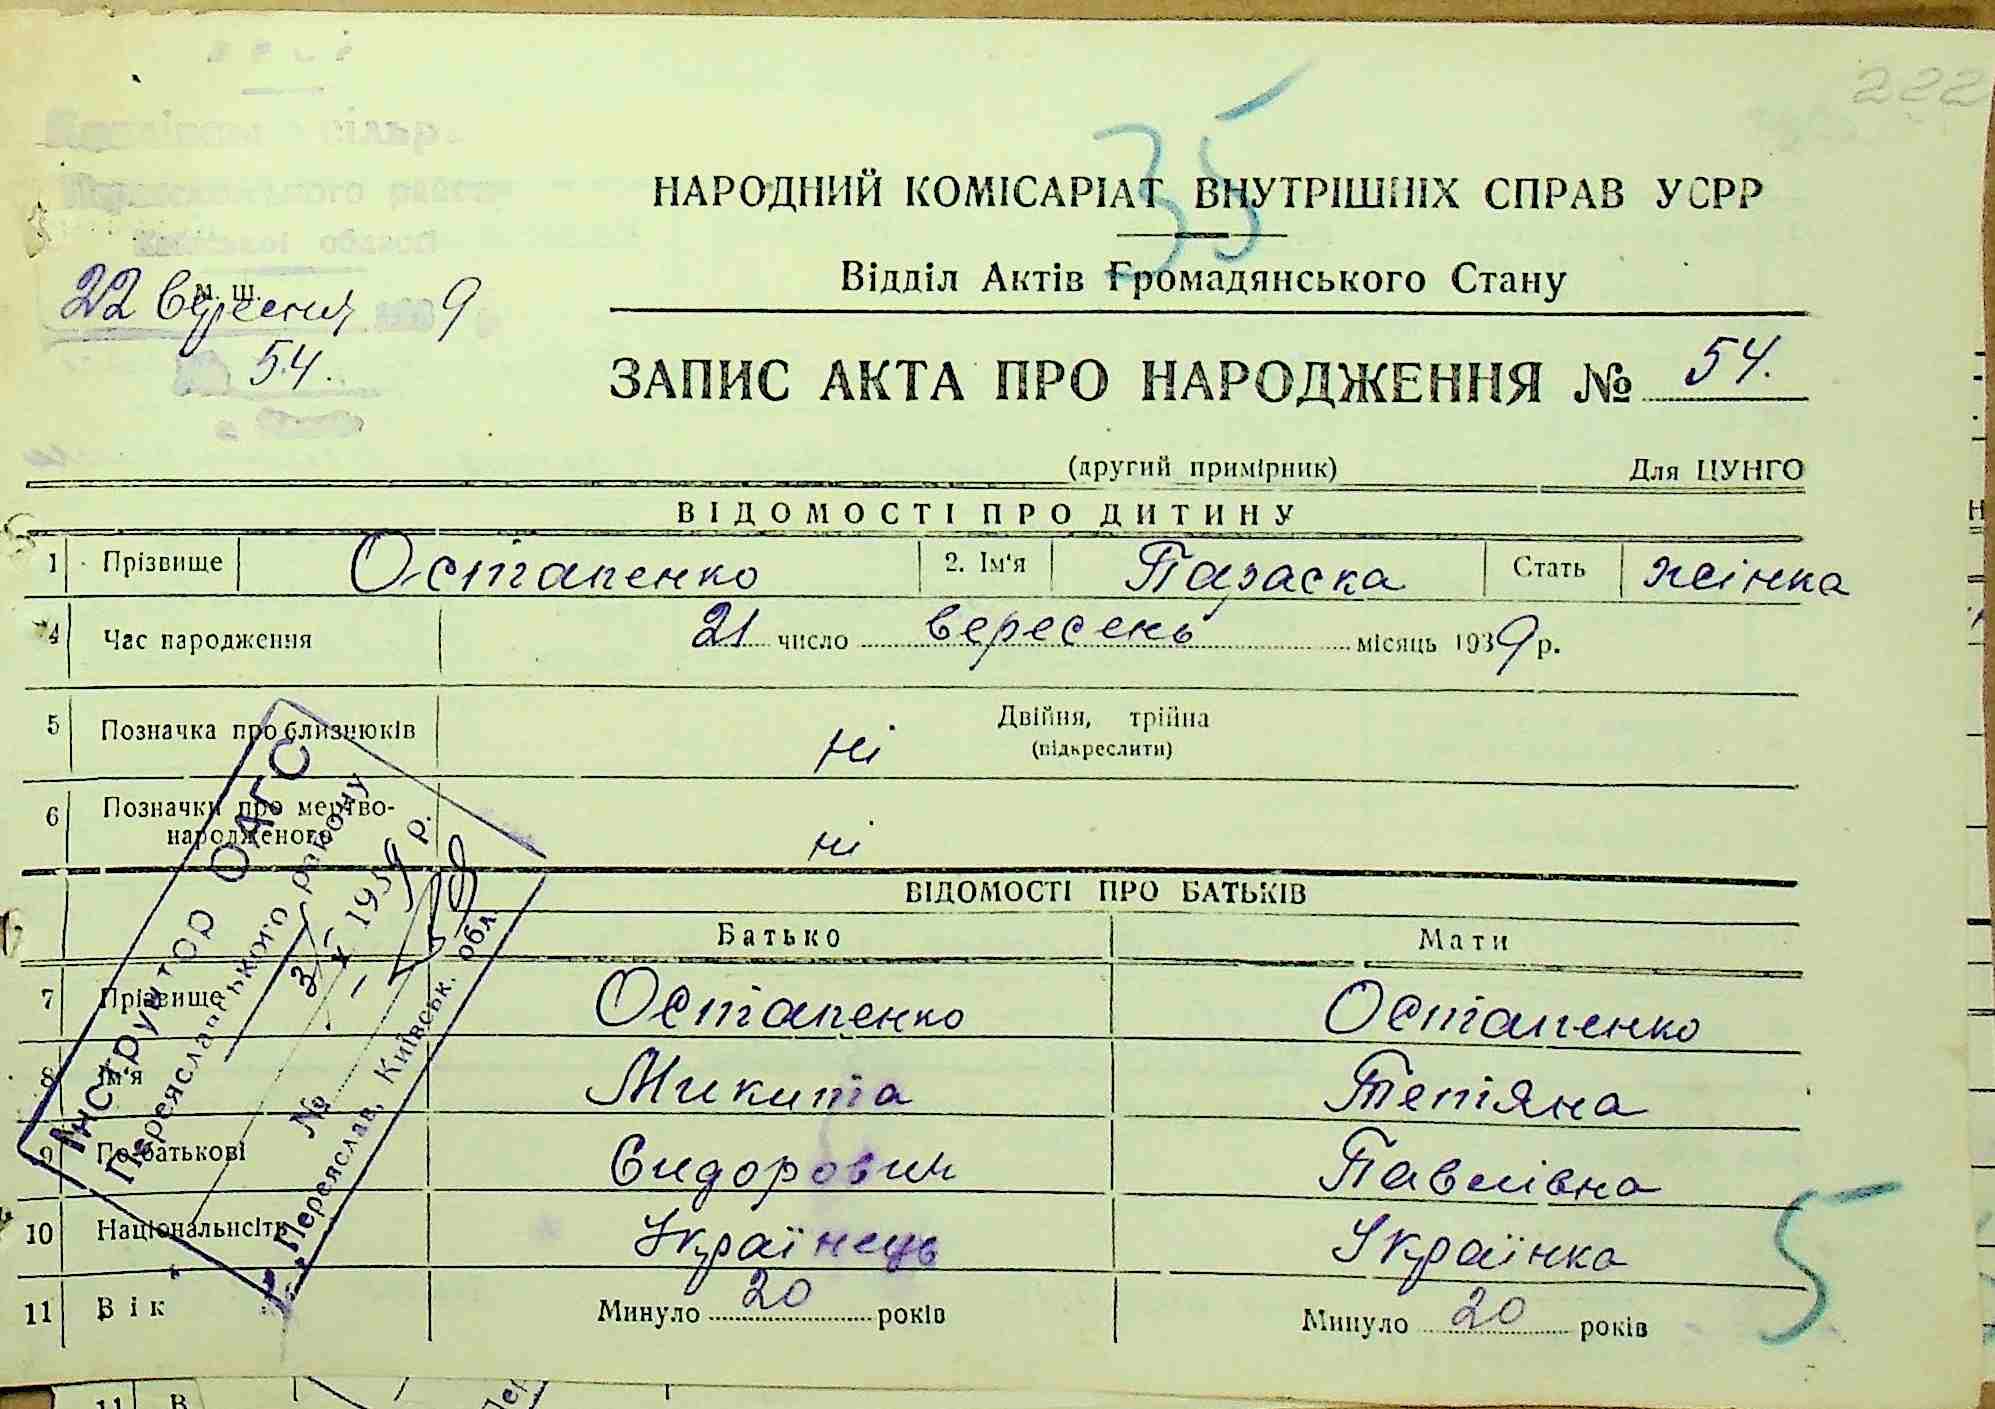 222
35
сільр
Переяславського району
Київської області
м. ш.
22 вересня 9
54.
НАРОДНИЙ КОМІСАРІАТ ВНУТРІШНІХ СПРАВ УСРР
Відділ Актів Громадянського Стану
ЗАПИС АКТА ПРО НАРОДЖЕННЯ № 54.
(другий примірник) Для ЦУНГО
ВІДОМОСТІ ПРО ДИТИНУ
1 Прізвище Остапенко 2. Ім'я Параска Стать жінка
4 Час народження 21 число вересень місяць 1939 р.
5 Позначка про близнюків ні Двійня, трійна
(підкреслити)
6 Позначки про мертво-
народженого ні
ВІДОМОСТІ ПРО БАТЬКІВ
Батько Мати
7 Прізвище Остапенко Остапенко
8 Ім'я Микита Тетяна
9 По батькові Сидорович Павлівна
10 Національнсіть Українець Українка
11 Вік Минуло 20 років Минуло 20 років
5
Інструктор ОАГС
Переяславського району
3 X 1939 р.
№
м. Переяслав, Київськ. обл.
11 В